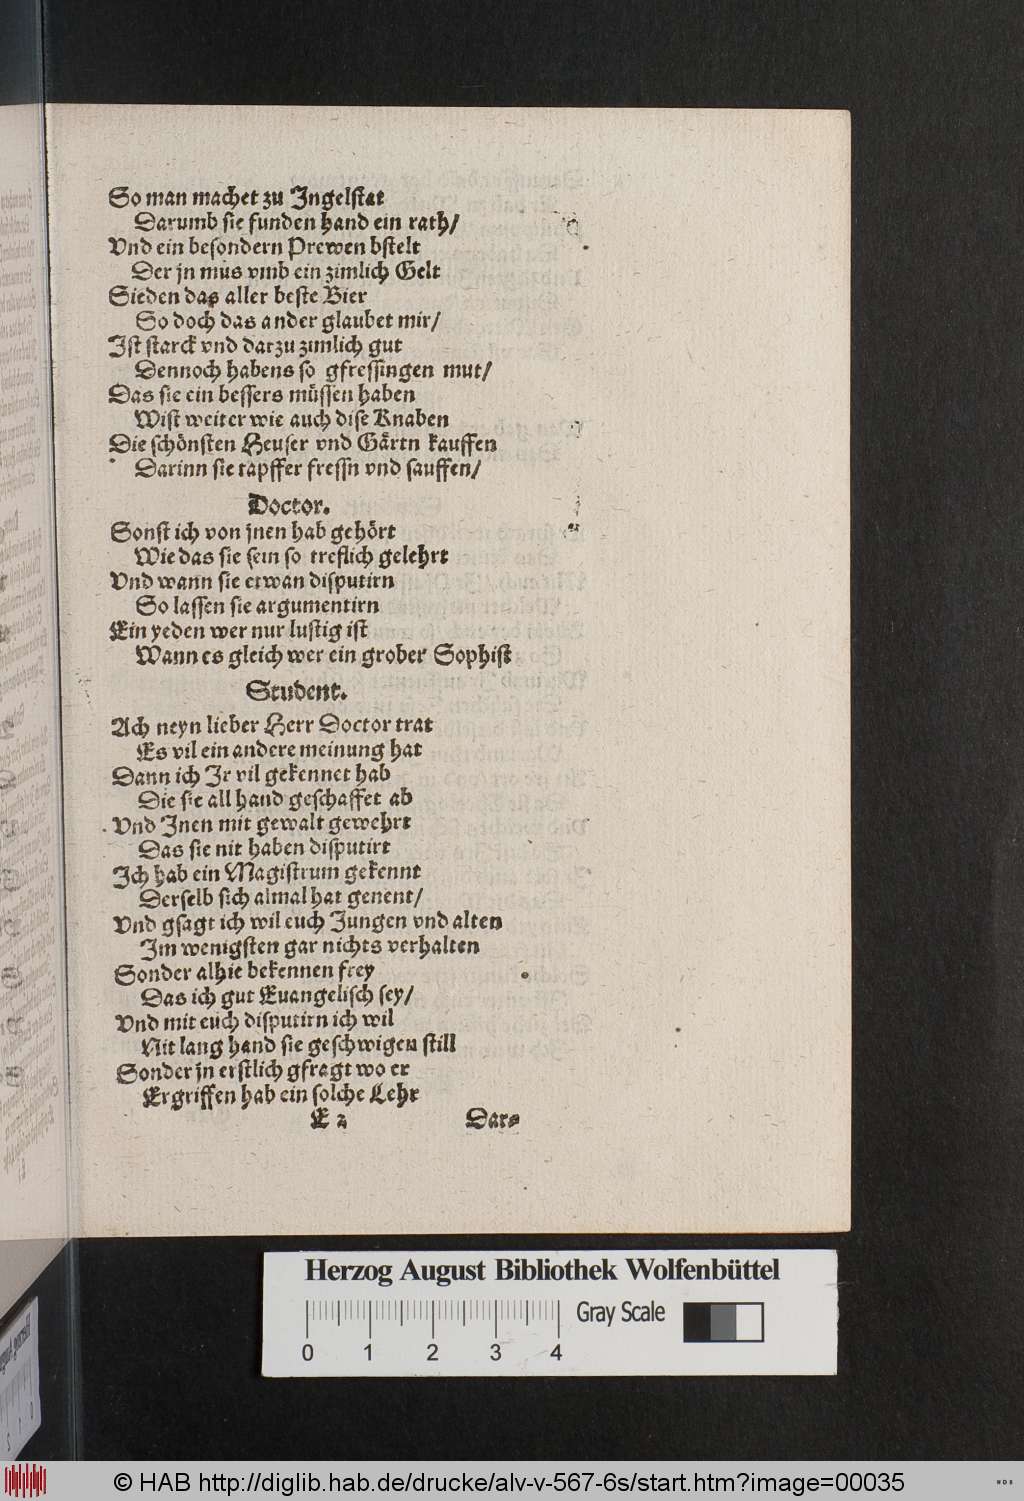 So man machet zu Ingelstat
Darumb sie funden hand ein rath/
Vnd ein besondern Prewen bstelt
Der jn mus vmb ein zimlich Gelt
Sieden das aller beste Bier
So doch das ander glaubet mir/
Ist starck vnd darzu zimlich gut
Dennoch habens so gfressingen mut/
Das sie ein bessers müssen haben
Wist weiter wie auch dise Knaben
Die schönsten Heuser vnd Gärtn kauffen
Darinn sie tapffer fressn vnd sauffen/
Doctor.
Sonst ich von jnen hab gehört
Wie das sie sein so treflich gelehrt
Vnd wann sie etwan disputirn
So lassen sie argumentirn
Ein yeden wer nur lustig ist
Wann es gleich wer ein grober Sophist
Student.
Ach neyn lieber Herr Doctor trat
Es vil ein andere meinung hat
Dann ich Ir vil gekennet hab
Die sie all hand geschaffet ab
Vnd Inen mit gewalt gewehrt
Das sie nit haben disputirt
Ich hab ein Magistrum gekennt
Derselb sich almal hat genent/
Vnd gsagt ich wil euch Jungen vnd alten
Im wenigsten gar nichts verhalten
Sonder alhie bekennen frey
Das ich gut Euangelisch sey/
Vnd mit euch disputirn ich wil
Nit lang hand sie geschwigen still
Sonder jn erstlich gfragt wo er
Ergriffen hab ein solche Lehr
E 2 Dar=
Herzog August Bibliothek Wolfenbüttel
Gray Scale
0 1 2 3 4
© HAB http://diglib.hab.de/drucke/alv-v-567-6s/start.htm?image=00035